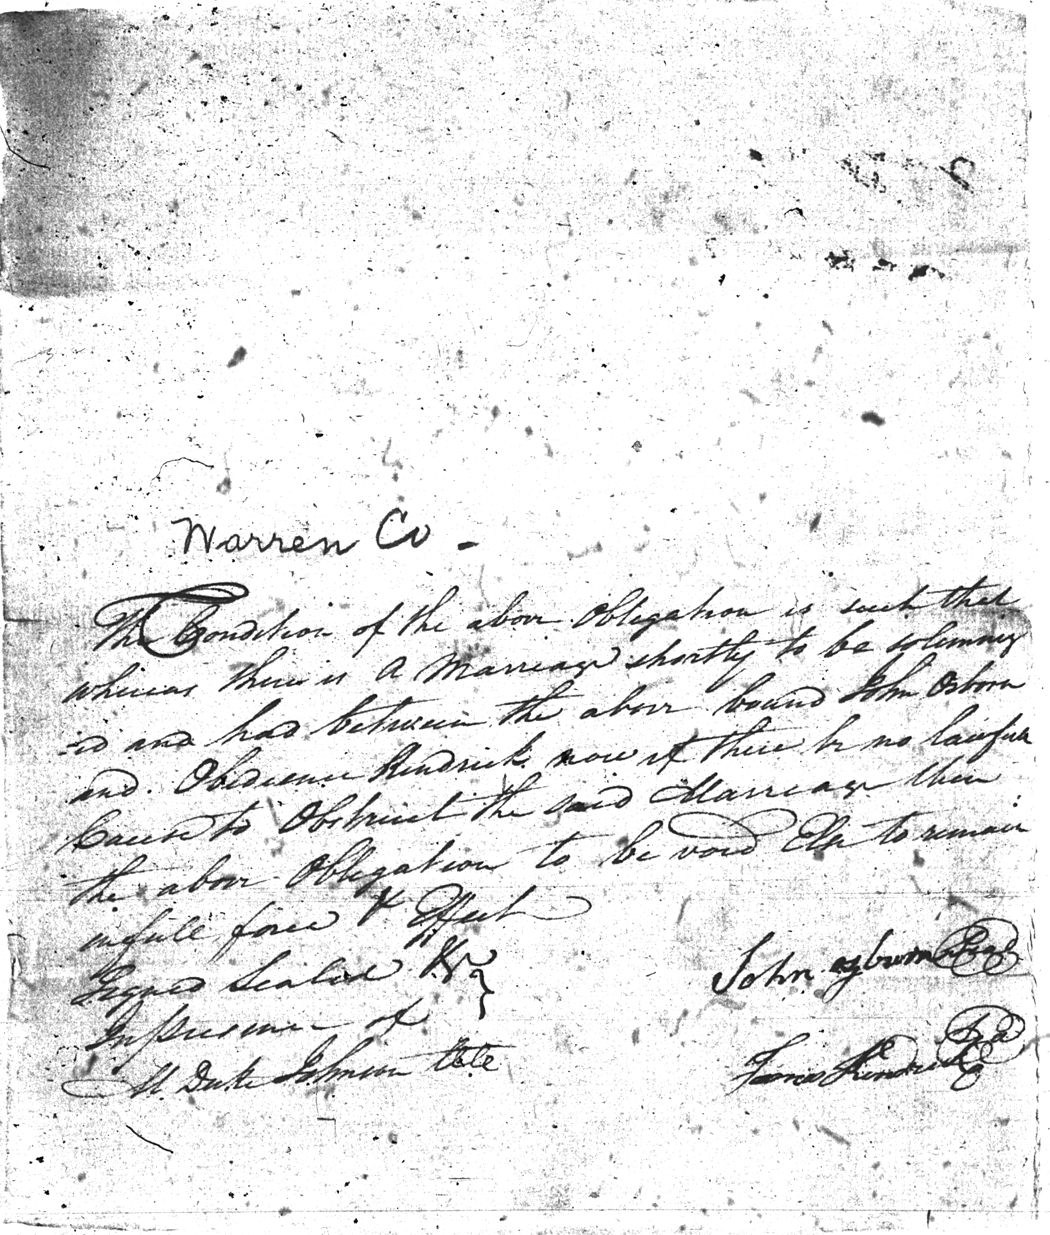 Warren Co -
The Condition of the above Obligation is such that
whereas there is A Marreage shortly to be solemniz
-ed and had between the above bound John Osborn
and Obedience Kendrick now if there be no lawfull
Cause to Obstruct the said Marreage then
the above Obligation to be void Else to remain
in full force & Effect
Signed Sealed &c
In presence of
M. Duke Johnson
John Seal
Kendrick Seal